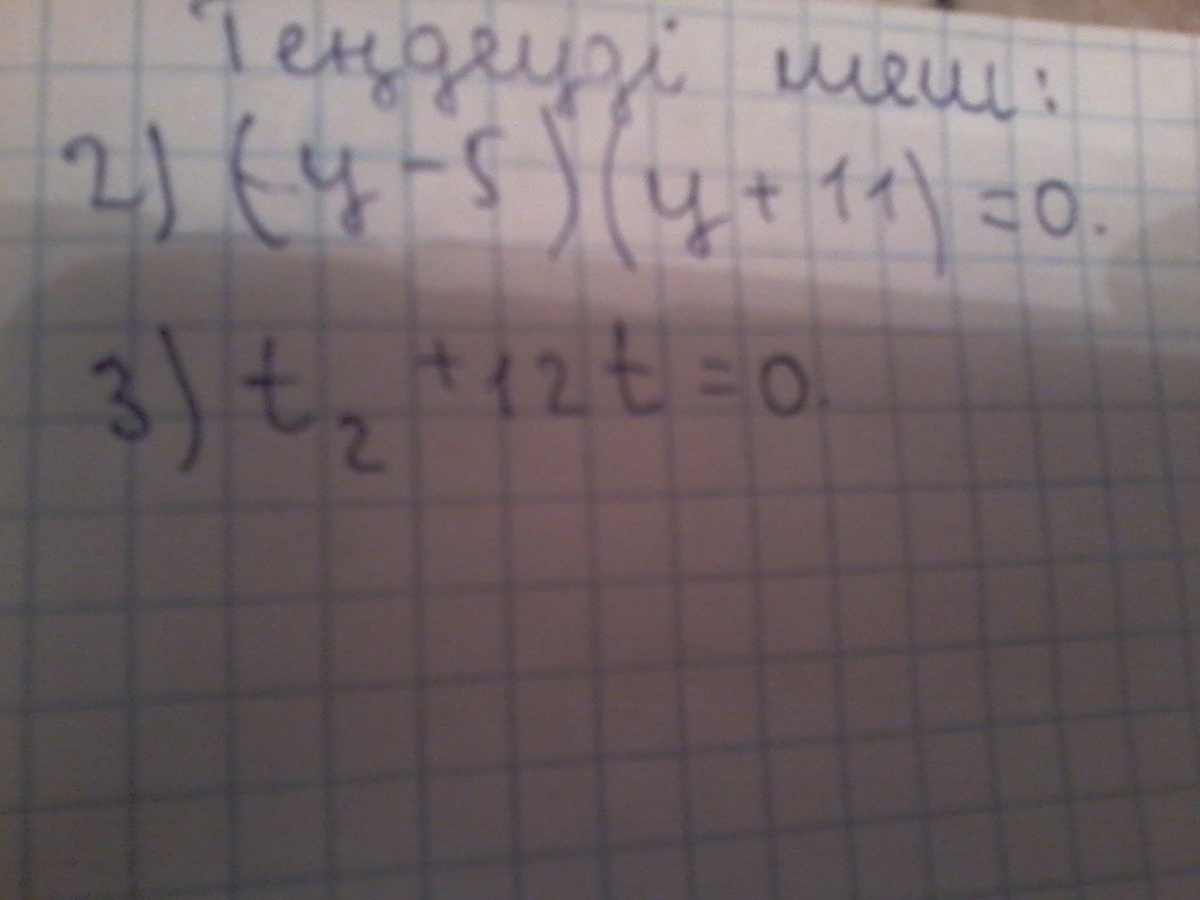 Теңдеуді шеш:
2) (-y-5)(y+11)=0.
3) t₂+12t=0.